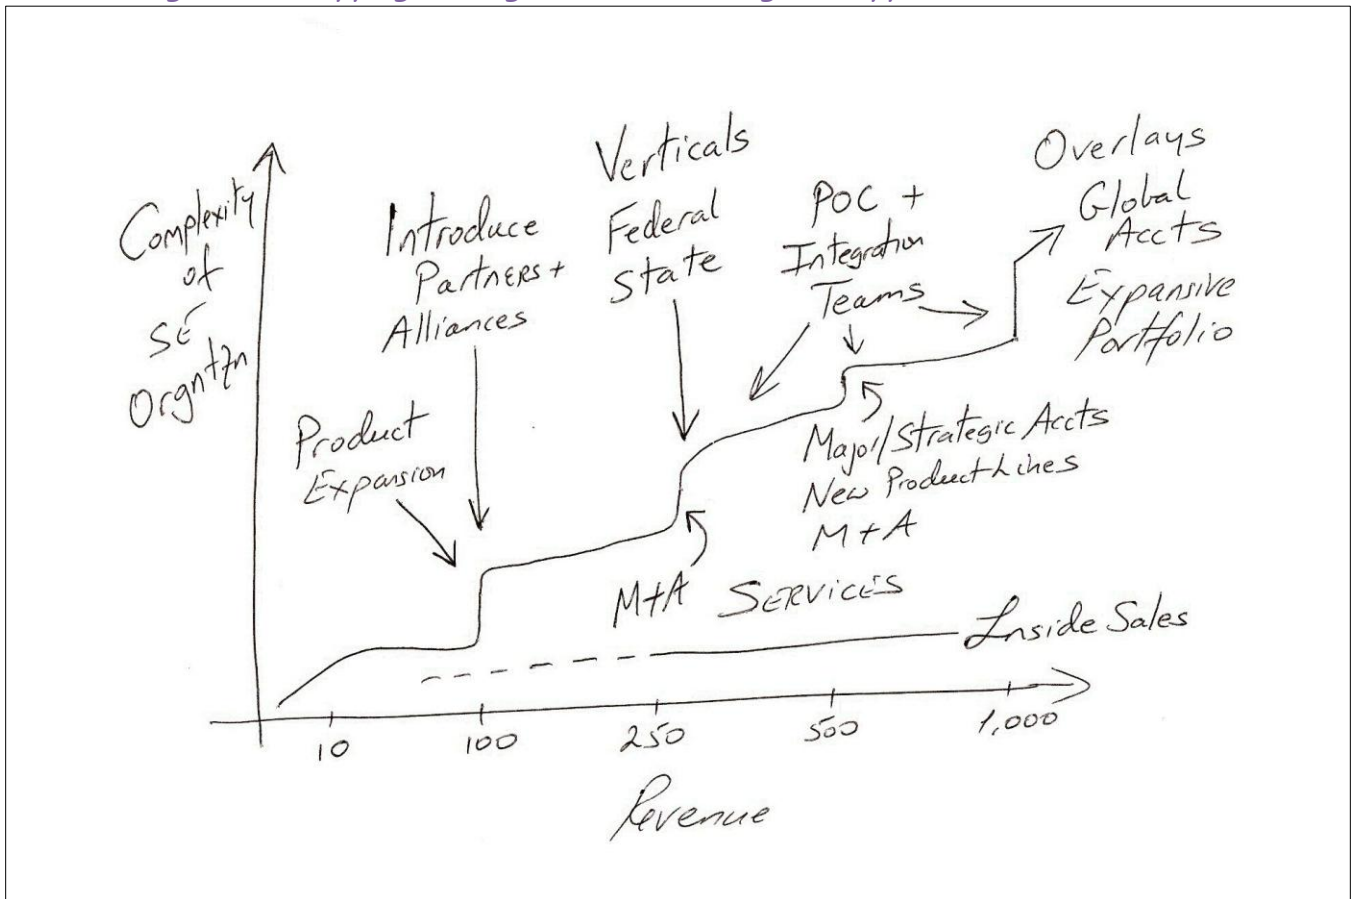 Complexity
of
SE
Orgntzn
Product
Expansion
Introduce
Partners +
Alliances
Verticals
Federal
State
POC +
Integration
Teams
Overlays
Global
Accts
Expansive
Portfolio
Major/Strategic Accts
New Product Lines
M + A
M+A SERVICES
Inside Sales
10 100 250 500 1,000
Revenue